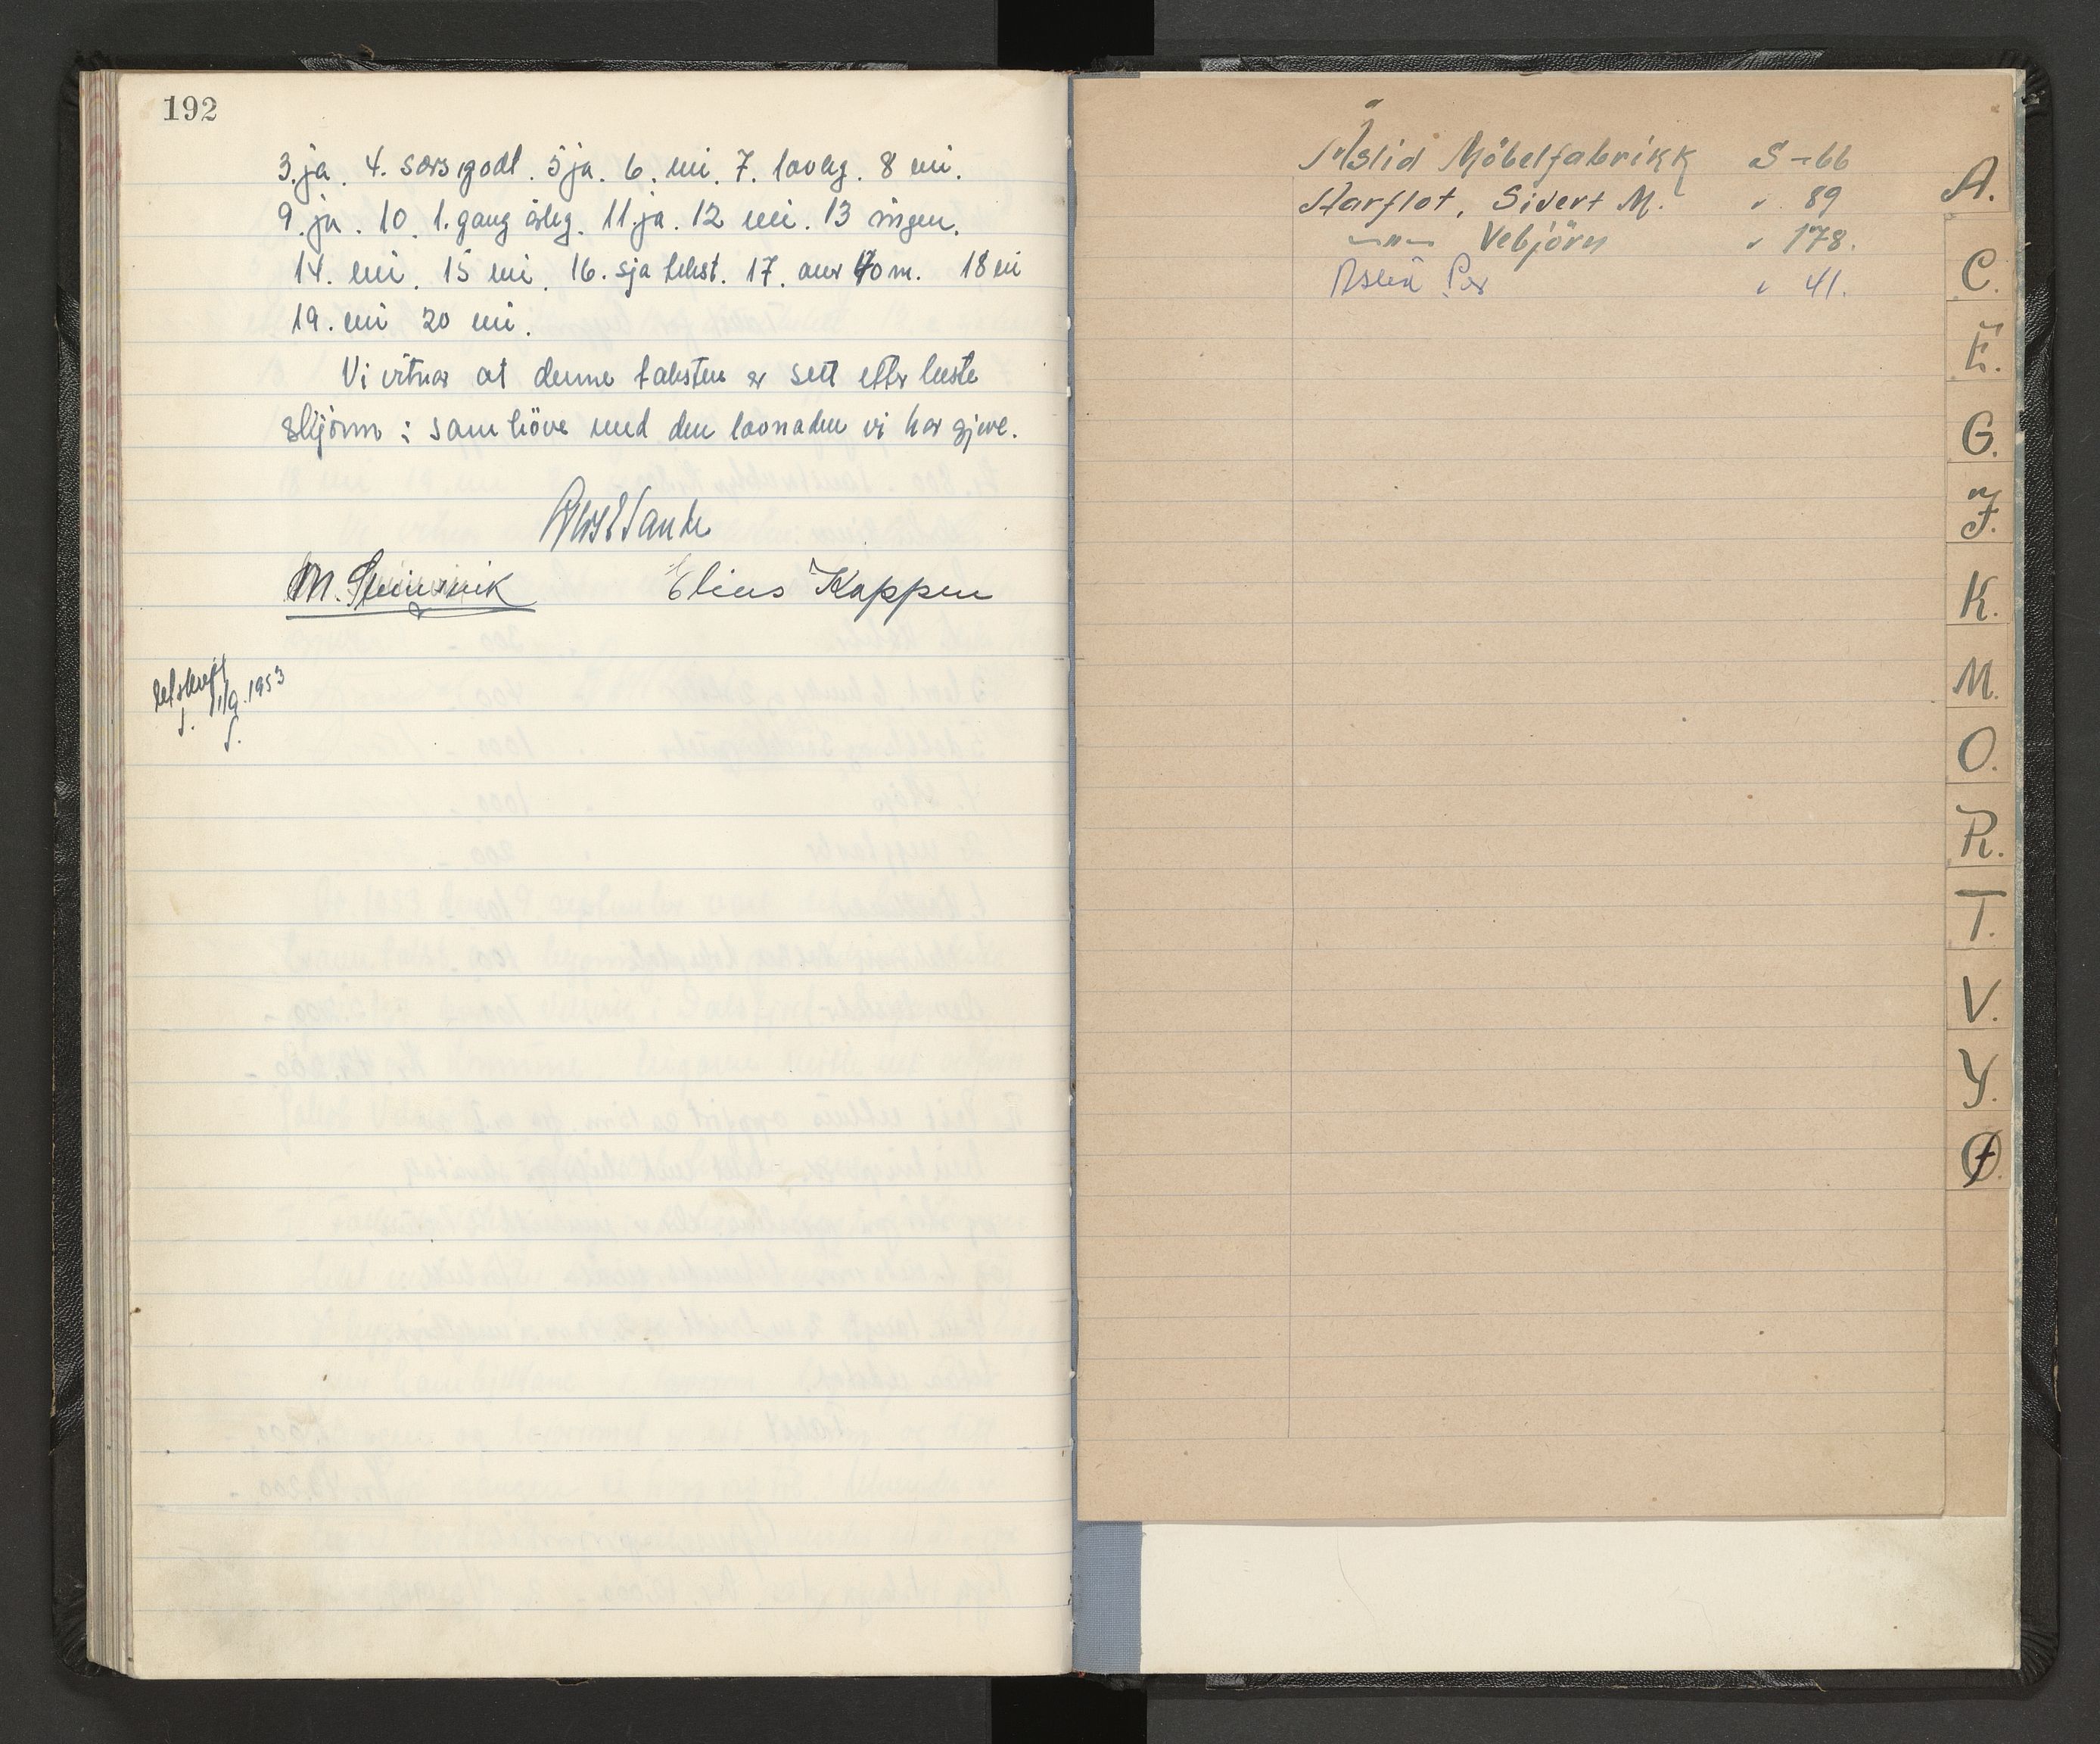 192
3. ja. 4. særs godt. 5 ja. 6. nei. 7. lovleg. 8 nei.
9. ja. 10. 1. gang årleg. 11. ja. 12 nei. 13 ingen.
14. nei. 15 nei. 16. sjå tekst. 17. over 40 m. 18 nei
19. nei 20 nei.
Vi vitnar at denne taksten er sett etter beste
skjönn i samhöve med den lovnaden vi har gjeve.
Elias Kappen
Utskrift
1/9. 1953
Åslid Möbelfabrikk S - 66
Aarflot, Sivert M. " 89
—"— Vebjörn " 178.
Per " 41.
A.
C.
E.
G.
J.
K.
M.
O.
R.
T.
V.
Y.
Ø